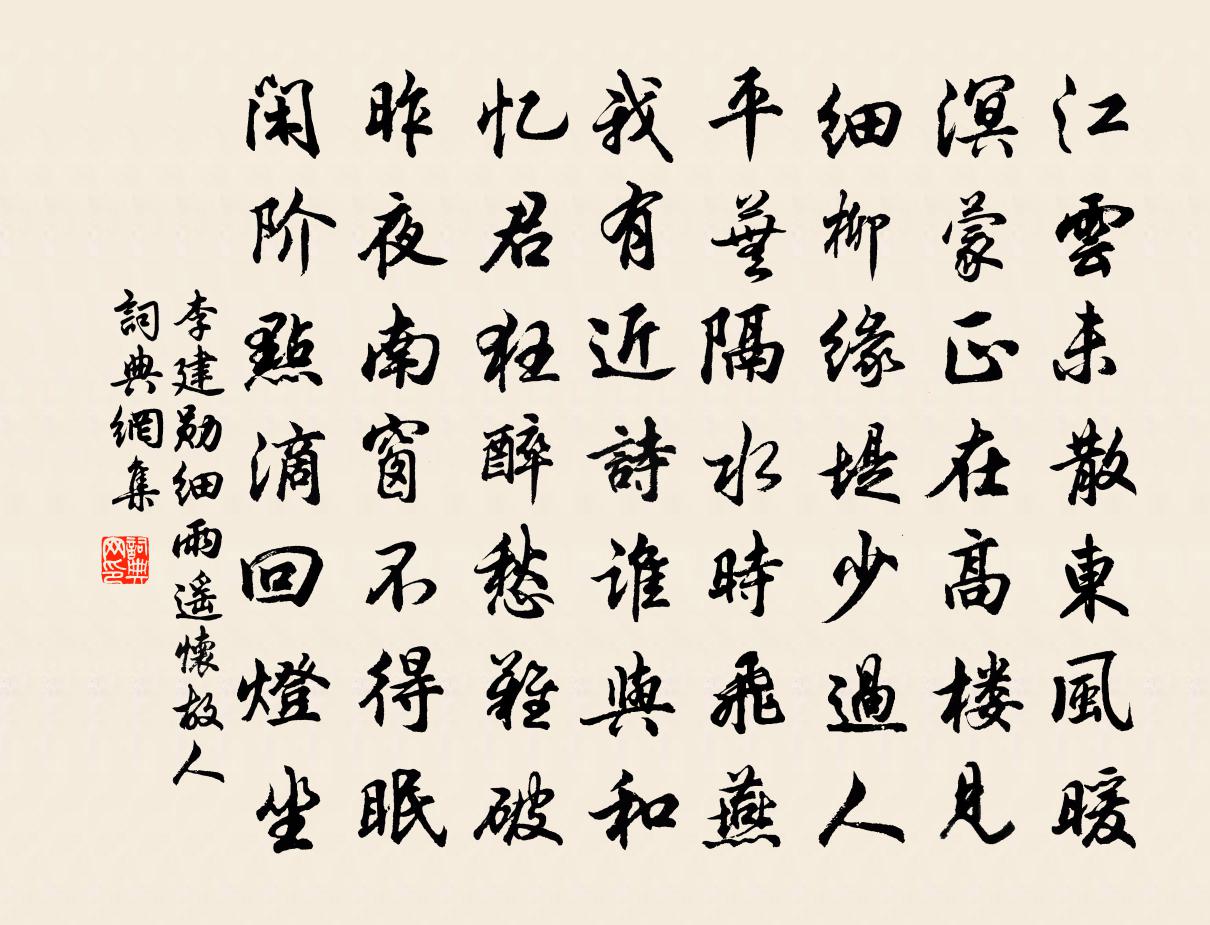 江雲未散東風暖
溟蒙正在高楼見
细柳缘堤少過人
平蕪隔水時飛燕
我有近詩誰與和
忆君狂醉愁難破
昨夜南窗不得眠
闲阶點滴回燈坐
李建勋细雨遥懷故人
詞典網集
詞典网印